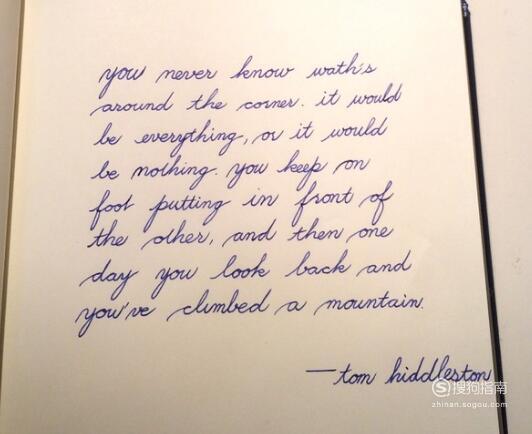 you never know wath's
around the corner. it would
be everything, or it would
be nothing. you keep on
foot putting in front of
the other, and then one
day you look back and
you've climbed a mountain.
—tom hiddleston
S搜狗指南
zhinan.sogou.com